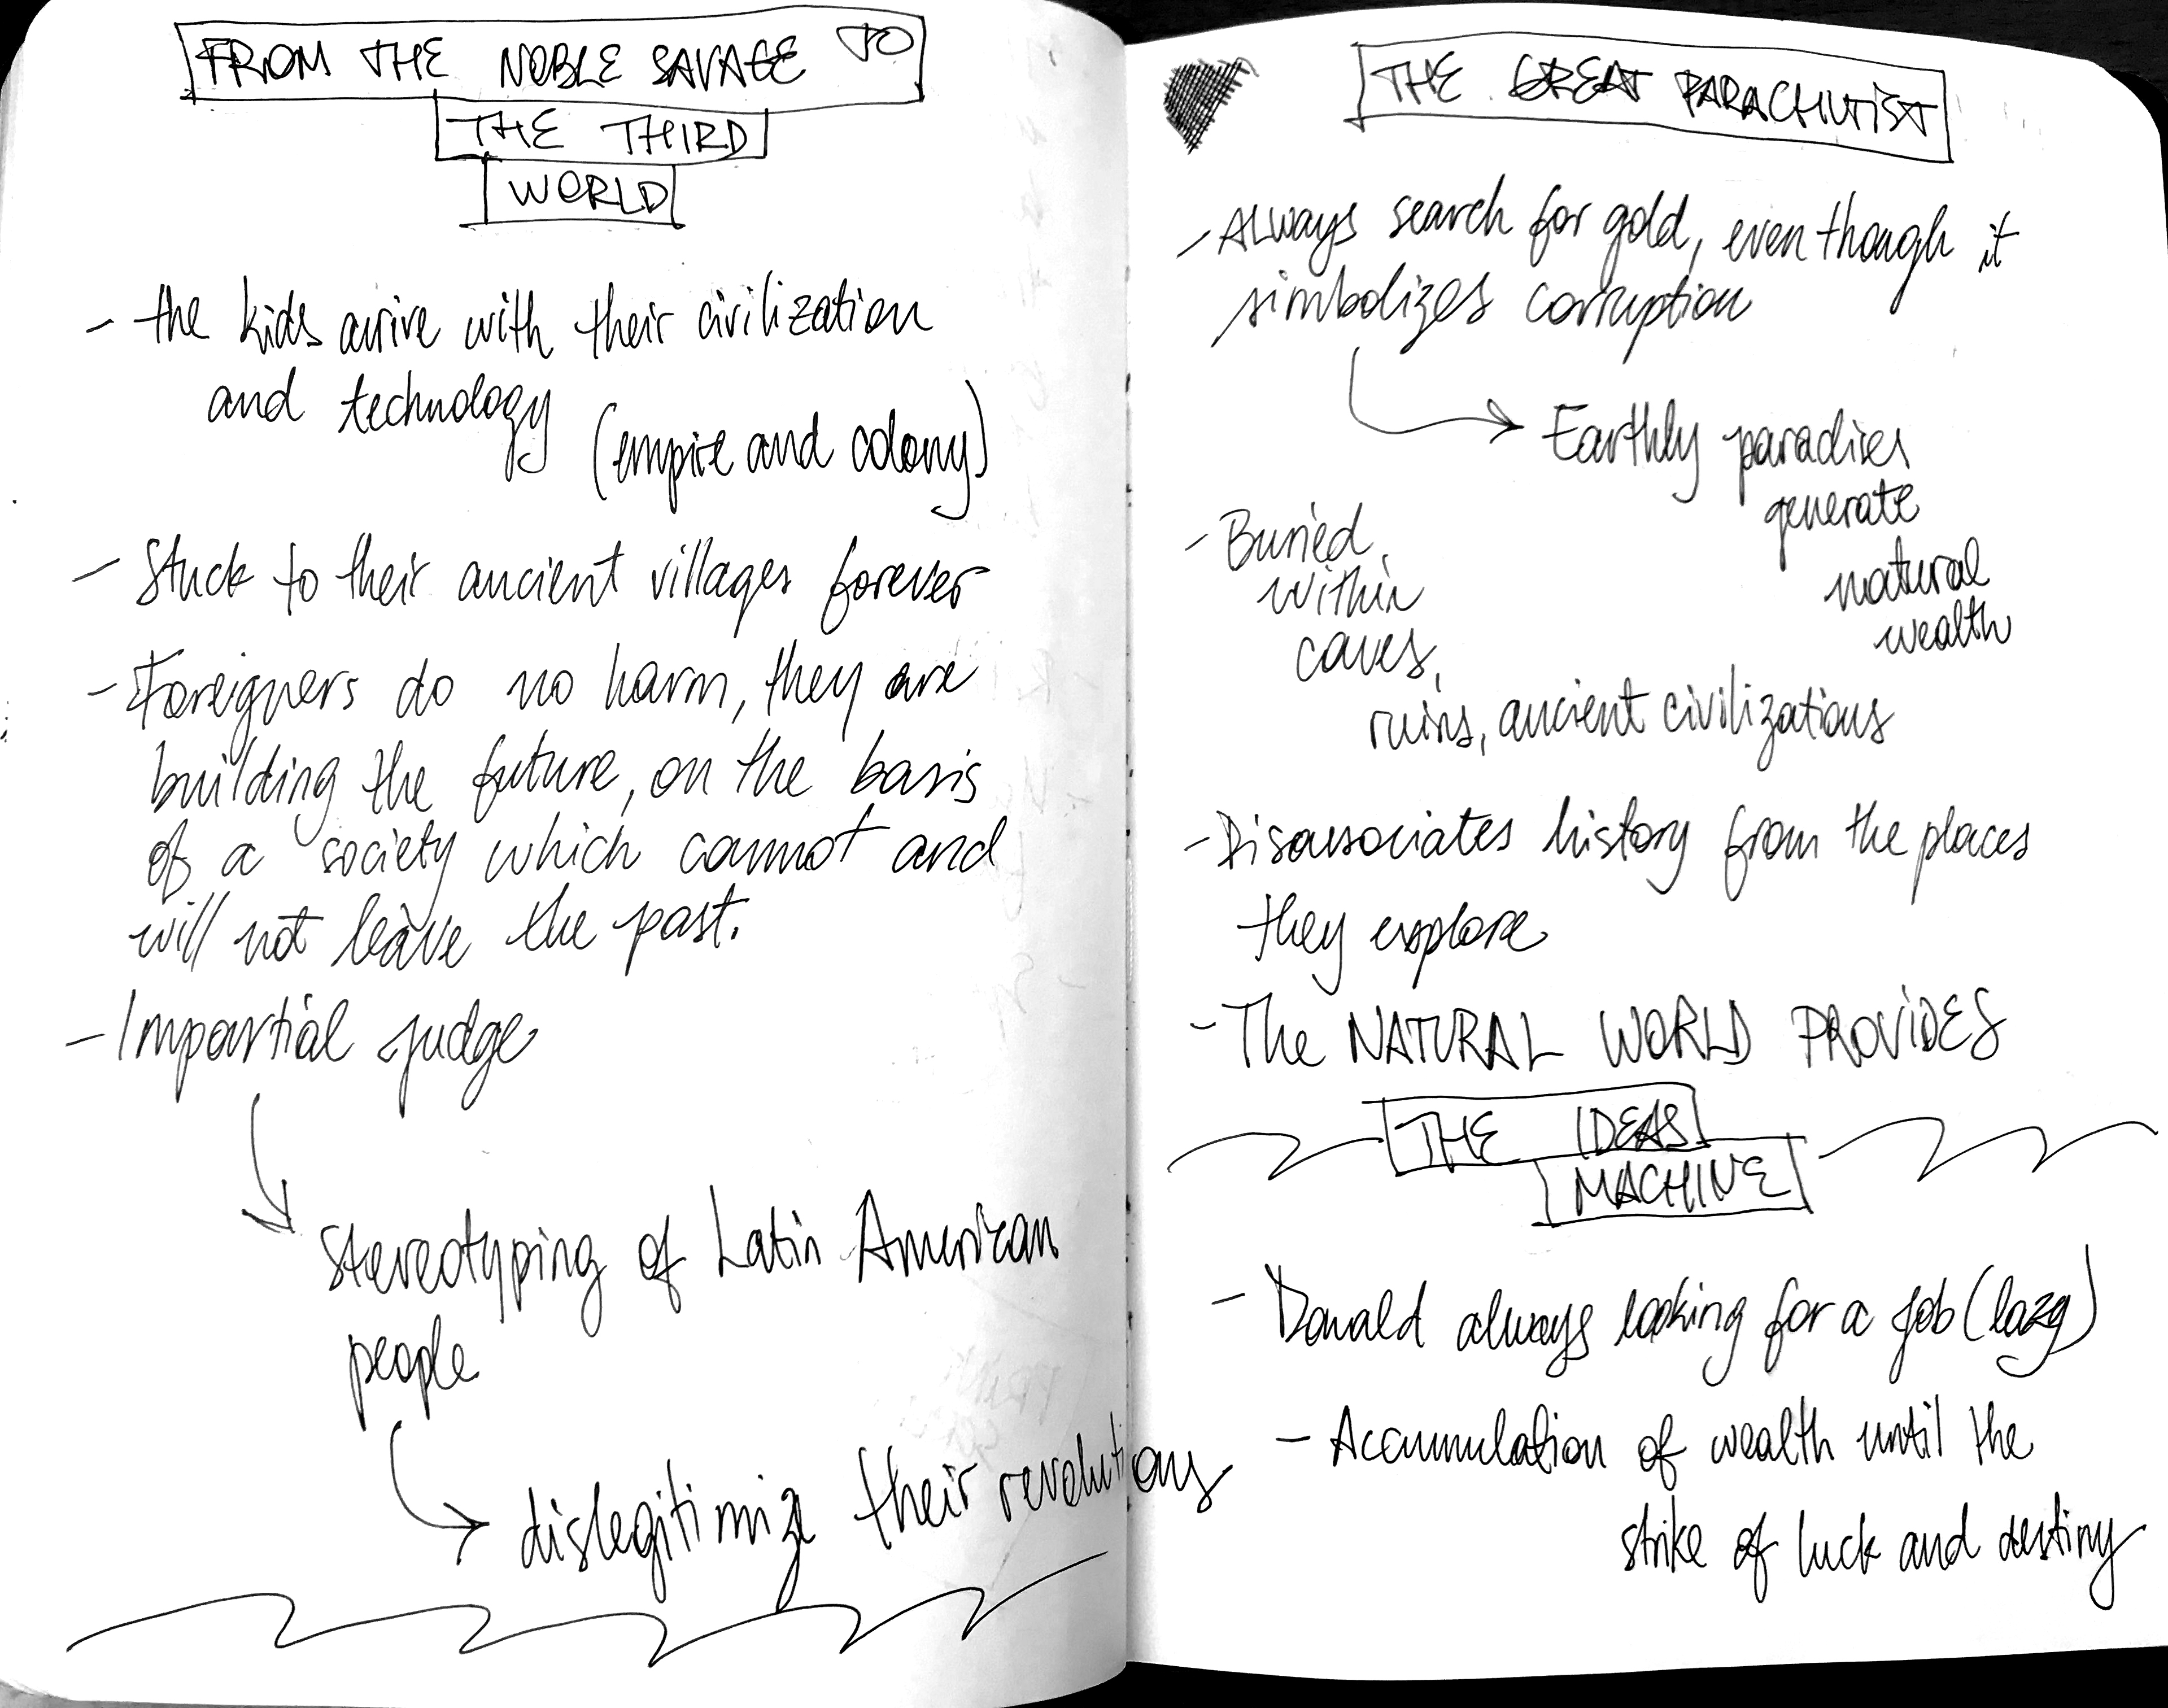 FROM THE NOBLE SAVAGE TO
THE THIRD
WORLD
- the kids arrive with their civilization
and technology
(empire and colony)
- Stuck to their ancient villages forever
- Foreigners do no harm, they are
building the future, on the basis
of a society which cannot and
will not leave the past.
- Impartial judge
stereotyping of Latin American
people
dislegitimize their revolutions
THE GREAT PARACHUTIST
- Always search for gold, even though it
simbolizes corruption
Earthly paradises
generate
natural
wealth
- Buried
within
caves,
ruins, ancient civilizations
- Disassociates history from the places
they explore
- The NATURAL WORLD PROVIDES
THE IDEAS
MACHINE
- Donald always looking for a job (lazy)
- Accumulation of wealth until the
strike of luck and destiny